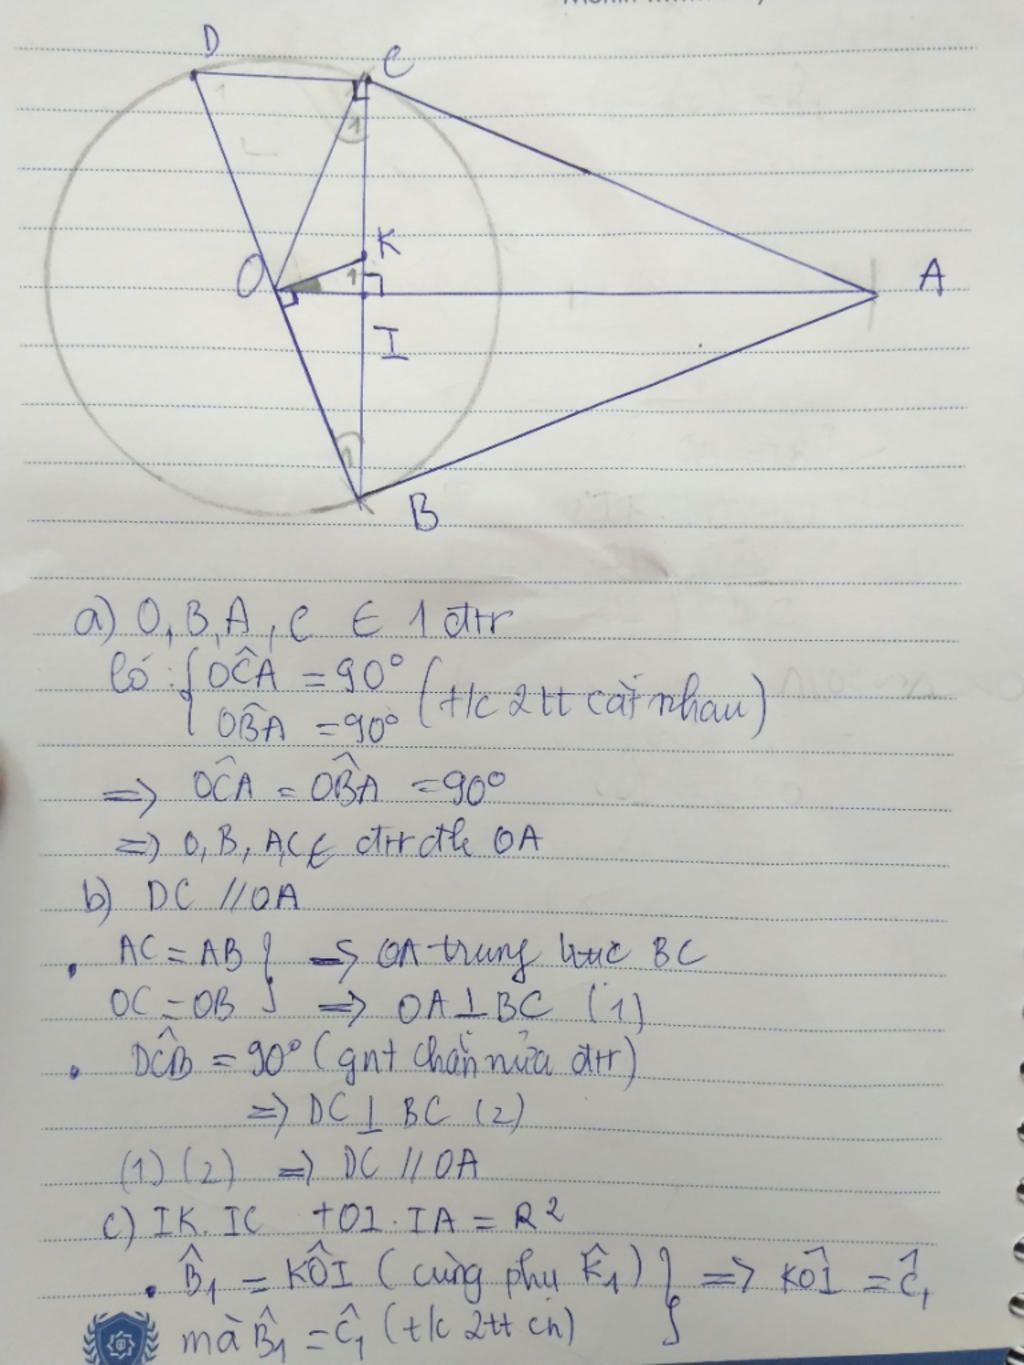 D
C
1
1
K
O
1
A
I
1
B
a) O, B, A, C ∈ 1 đtr
Có : { OĈA = 90°
OB̂A = 90° (t/c 2tt cắt nhau)
=> OĈA = OB̂A = 90°
=> O, B, A, C ∈ đtr đk OA
b) DC // OA
• AC = AB } => OA trung trực BC
OC = OB => OA ⊥ BC (1)
• DĈB = 90° (gnt chắn nửa đtr)
=> DC ⊥ BC (2)
(1) (2) => DC // OA
c) IK. IC + OI. IA = R²
• B̂₁ = KÔI (cùng phụ K̂₁) } => KÔI = Ĉ₁
mà B̂₁ = Ĉ₁ (t/c 2tt cn)